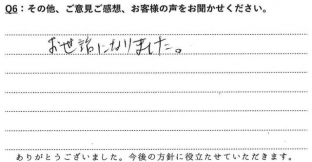 Q6：その他、ご意見ご感想、お客様の声をお聞かせください。
お世話になりました。
ありがとうございました。今後の方針に役立たせていただきます。